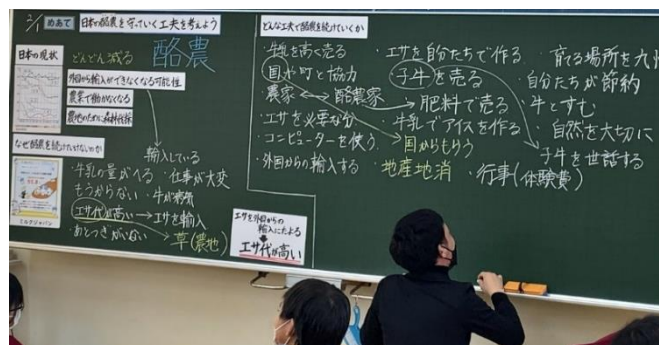 2/1 めあて 日本の酪農を守っていく工夫を考えよう
日本の現状
どんどん減る 酪農
外国から輸入ができなくなる可能性
農業で働かなくなる
農地のために森林伐採
なぜ酪農を続けていけないのか
輸入している
・牛乳の量がへる ・仕事が大変
もうからない ・牛が病気
・エサ代が高い→エサを輸入
・あとつぎがいない
草(農地)
ミルクジャパン
エサを外国からの
輸入にたよる
エサ代が高い
どんな工夫で酪農を続けていくか
・牛乳を高く売る
・国や町と協力
農家 酪農家
・エサを必要な分
・コンピューターを使う
・外国からの輸入する
・エサを自分たちで作る
・子牛を売る
・肥料で売る
・牛乳でアイスを作る
・国からもらう
・地産地消
・育てる場所を九州
・自分たちが節約
・牛とすむ
・自然を大切に
子牛を世話する
・行事(体験費)